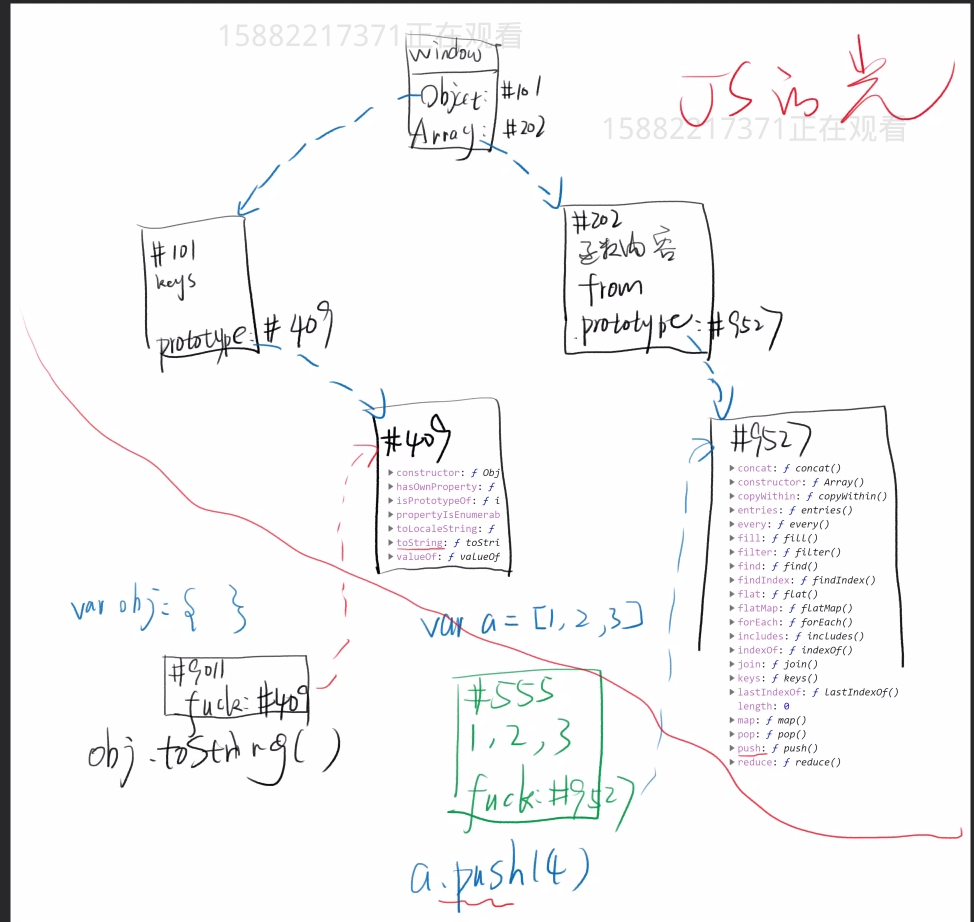 15882217371正在观看
window
Object: #101
Array: #202
JS的光
15882217371正在观看
#101
keys
prototype: #409
#202
函数内容
from
prototype: #9527
#409
constructor: ƒ Obj
hasOwnProperty: ƒ
isPrototypeOf: ƒ i
propertyIsEnumerab
toLocaleString: ƒ
toString: ƒ toStri
valueOf: ƒ valueOf
#9527
concat: ƒ concat()
constructor: ƒ Array()
copyWithin: ƒ copyWithin()
entries: ƒ entries()
every: ƒ every()
fill: ƒ fill()
filter: ƒ filter()
find: ƒ find()
findIndex: ƒ findIndex()
flat: ƒ flat()
flatMap: ƒ flatMap()
forEach: ƒ forEach()
includes: ƒ includes()
indexOf: ƒ indexOf()
join: ƒ join()
keys: ƒ keys()
lastIndexOf: ƒ lastIndexOf()
length: 0
map: ƒ map()
pop: ƒ pop()
push: ƒ push()
reduce: ƒ reduce()
var obj = { }
#9011
fuck: #409
obj.toString()
var a = [1, 2, 3]
#555
1, 2, 3
fuck: #9527
a.push(4)